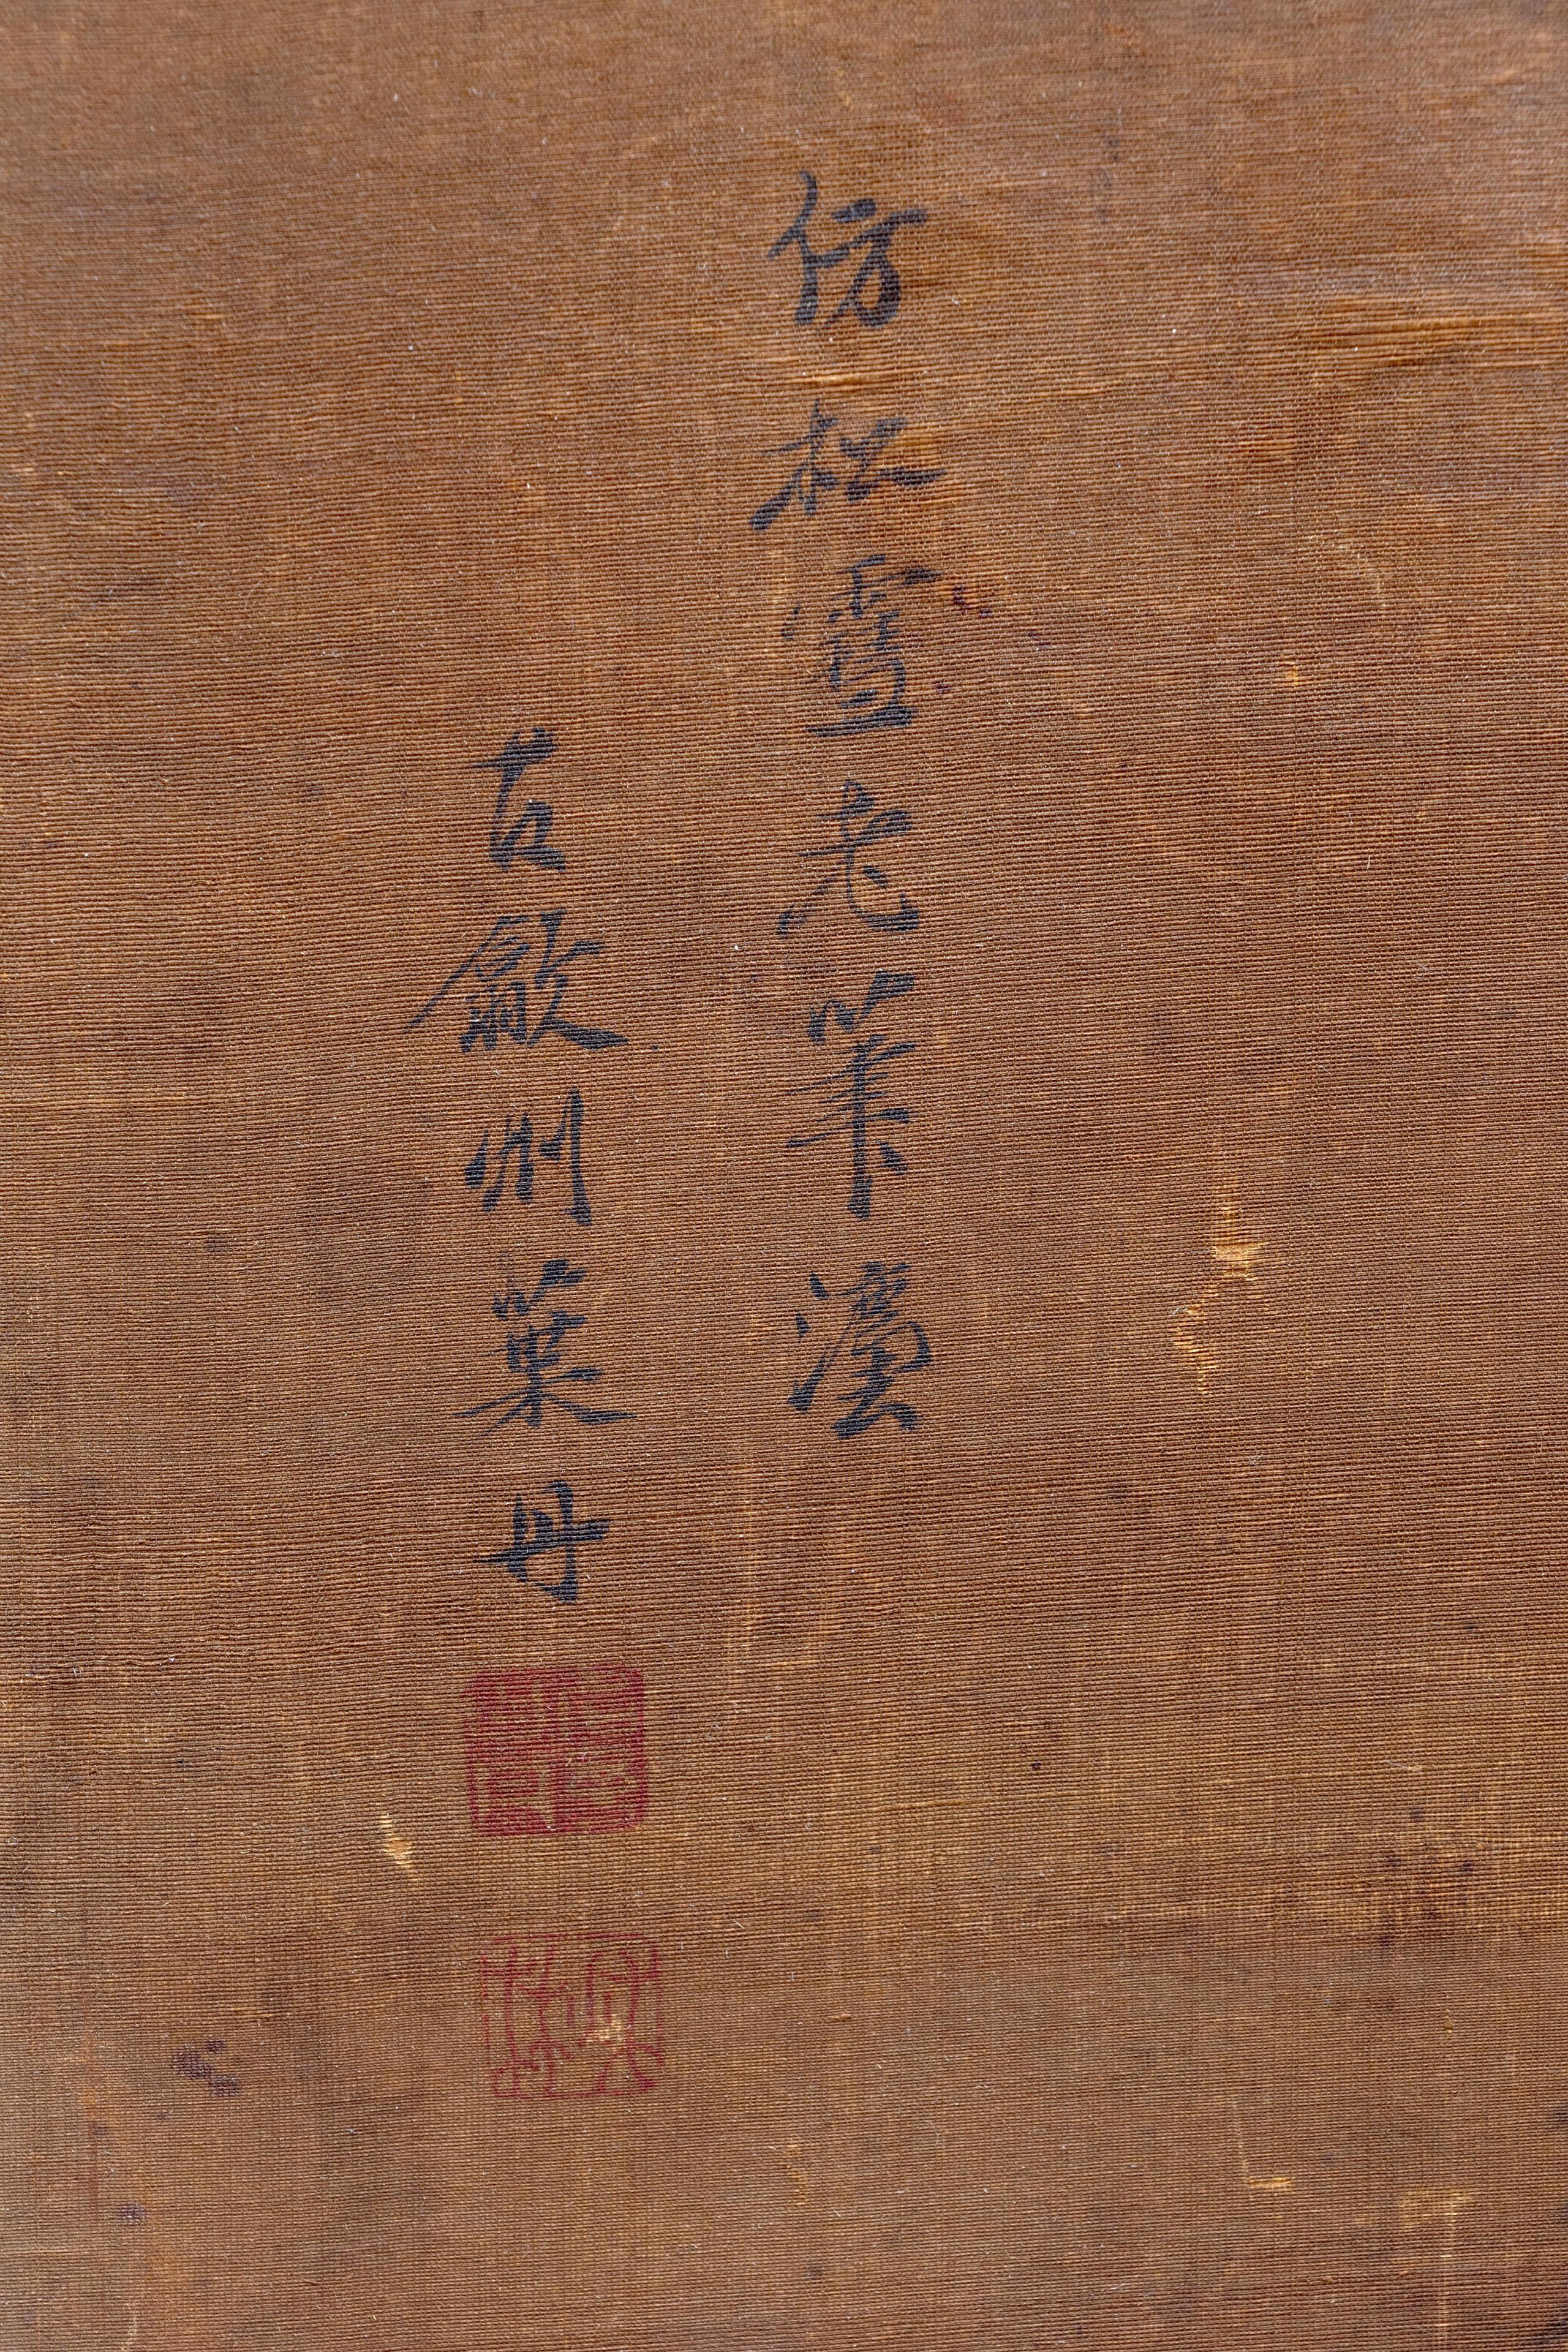 仿松雪老筆灋
古歙州葉丹